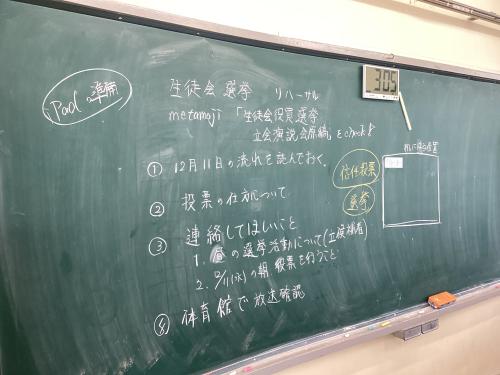 iPadの準備
生徒会選挙 リハーサル
metamoji「生徒会役員選挙
立会演説会原稿」をcheck!
305
① 12月11日の流れを読んでおく。
② 投票の仕方について
信任投票
選挙
③ 連絡してほしいこと
1. 昼の選挙活動について(立候補者)
2. 12/11(水)の朝 投票を行うこと
④ 体育館で放送確認